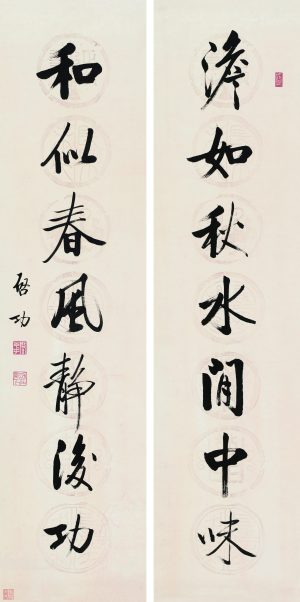 澹如秋水閒中味
和似春風靜後功
啓功